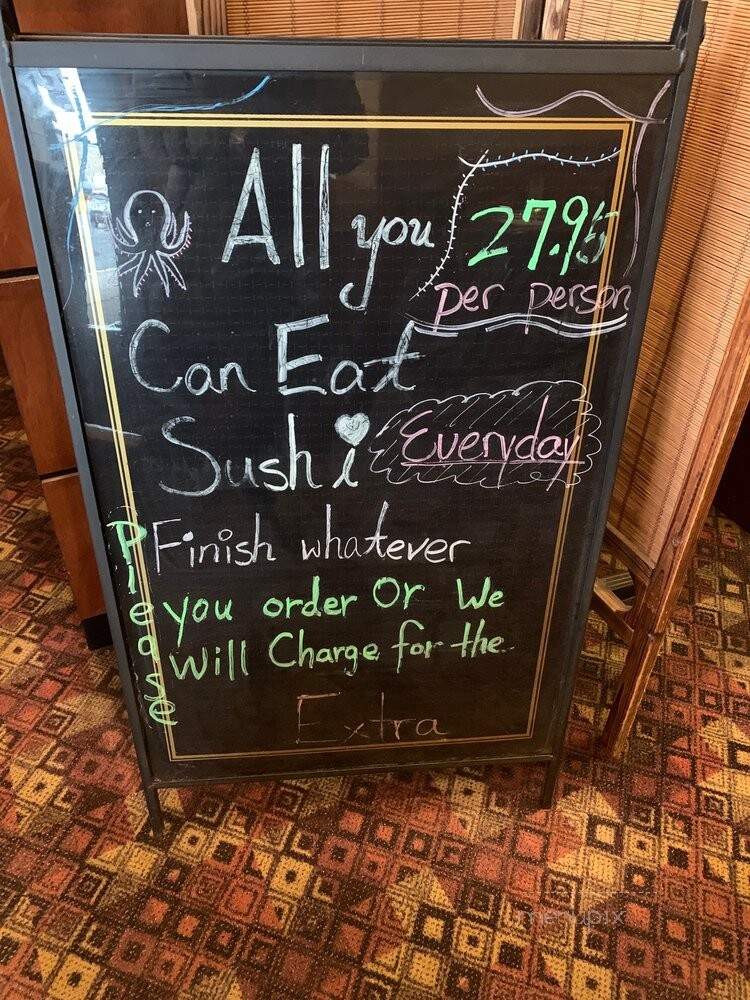 All you
27.95
per person
Can Eat
Sushi
Everyday
Please
Finish whatever
you order Or We
Will Charge for the
Extra
menupix